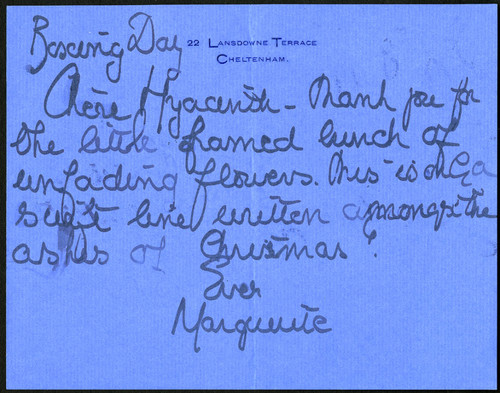 Boxing Day
22 LANSDOWNE TERRACE
CHELTENHAM.
Chère Hyacinth - Thank you for
the little framed bunch of
unfading flowers. This is only a
swift line written amongst the
ashes of Christmas!
Ever
Marguerite